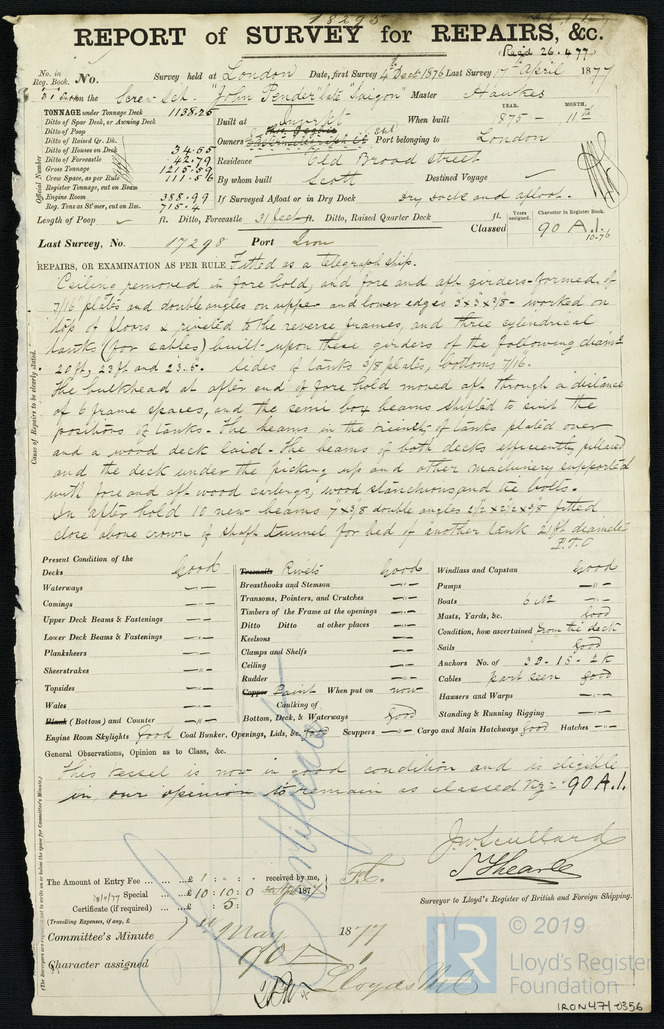 18295
REPORT of SURVEY for REPAIRS, &c.
Recd 26.4.77
No. in Reg. Book. No. Survey held at London Date, first Survey 4th Dec 1876 Last Survey 17th April 1877
on the Screw Sch. "John Pender" late "Saigon" Master Hawkes
TONNAGE under Tonnage Deck 1138.25
Ditto of Spar Deck, or Awning Deck
Ditto of Poop
Ditto of Raised Qr. Dk.
Ditto of Houses on Deck 34.55
Ditto of Forecastle 42.79
Gross Tonnage 1215.59
Crew Space, as per Rule 111.56
Register Tonnage, cut on Beam
Engine Room 388.99
Reg. Tons as St'mer, cut on Bm. 715.4
Official Number
Built at When built YEAR. 1875 - MONTH. 11th
Owners Port belonging to London
Residence Old Broad Street
By whom built Scott Destined Voyage
If Surveyed Afloat or in Dry Dock Dry Dock and afloat.
Length of Poop ft. Ditto, Forecastle 31 feet ft. Ditto, Raised Quarter Deck ft.
Classed Years assigned. Character in Register Book. 90 A.1. 10-76
Last Survey, No. 17298 Port Lon
REPAIRS, OR EXAMINATION AS PER RULE Fitted as a telegraph ship.
Cause of Repairs to be clearly stated.
Ceiling removed in fore hold, and fore and aft girders formed of
7/16 plates and double angles on upper and lower edges 3x3x3/8 - worked on
top of floors & riveted to the reverse frames, and three cylindrical
tanks (for cables) built upon these girders of the following diamr
20 ft, 23 ft and 23.5". Sides of tanks 3/8 plates, bottoms 7/16.
The bulkhead at after end of fore hold moved aft through a distance
of 6 frame spaces, and the semi box beams shifted to suit the
positions of tanks. The beams in the vicinity of tanks plated over
and a wood deck laid. The beams of both decks efficiently pillared
and the deck under the picking up and other machinery supported
with fore and aft wood carlings, wood stanchions and tie bolts.
In after hold 10 new beams 7x3/8 double angles 2 1/2 x 2 1/2 x 3/8 fitted
close above crown of shaft tunnel for bed of another tank 21 ft diameter
P.T.O
Present Condition of the
Decks Good
Waterways -"-
Comings -"-
Upper Deck Beams & Fastenings -"-
Lower Deck Beams & Fastenings -"-
Planksheers -"-
Sheerstrakes -"-
Topsides -"-
Wales -"-
Plank (Bottom) and Counter -"-
Treenails Rivets Good
Breasthooks and Stemson -"-
Transoms, Pointers, and Crutches -"-
Timbers of the Frame at the openings -"-
Ditto Ditto at other places -"-
Keelsons -"-
Clamps and Shelfs -"-
Ceiling -"-
Rudder -"-
Copper Paint When put on now
Caulking of
Bottom, Deck, & Waterways Good
Windlass and Capstan Good
Pumps -"-
Boats 6 No -"-
Masts, Yards, &c. Good
Condition, how ascertained from the deck
Sails Good
Anchors No. of 3B. 1S. 2K
Cables part seen good
Hawsers and Warps -"-
Standing & Running Rigging -"-
Engine Room Skylights Good Coal Bunker, Openings, Lids, &c. Good Scuppers -"- Cargo and Main Hatchways good Hatches -"-
General Observations, Opinion as to Class, &c.
This vessel is now in good condition and is eligible
in our opinion to remain as classed viz:- 90 A.1.
The Amount of Entry Fee ... £ : : received by me,
Special £10:10:0 1877
Certificate (if required) .. : 5:
(Travelling Expenses, if any, £
Surveyor to Lloyd's Register of British and Foreign Shipping.
Committee's Minute 1st May 1877
Character assigned 90 A 1
Lloyds
© 2019
LR
Lloyd's Register
Foundation
IRON471-0356